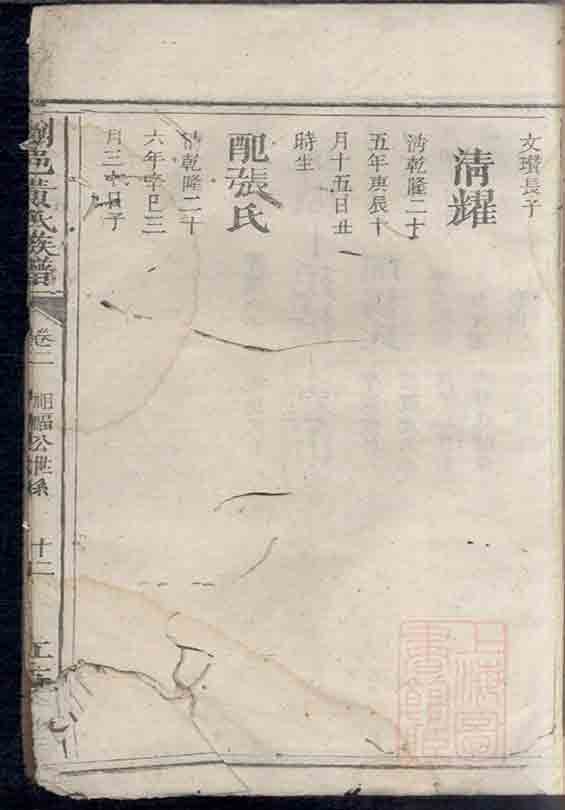 文瓚長子
清耀
清乾隆二十
五年庚辰十
月十五日丑
時生
配張氏
清乾隆二十
六年辛巳三
月三十日子
劉邑黄氏族譜
卷二
公世系
十二
上海圖
書館藏